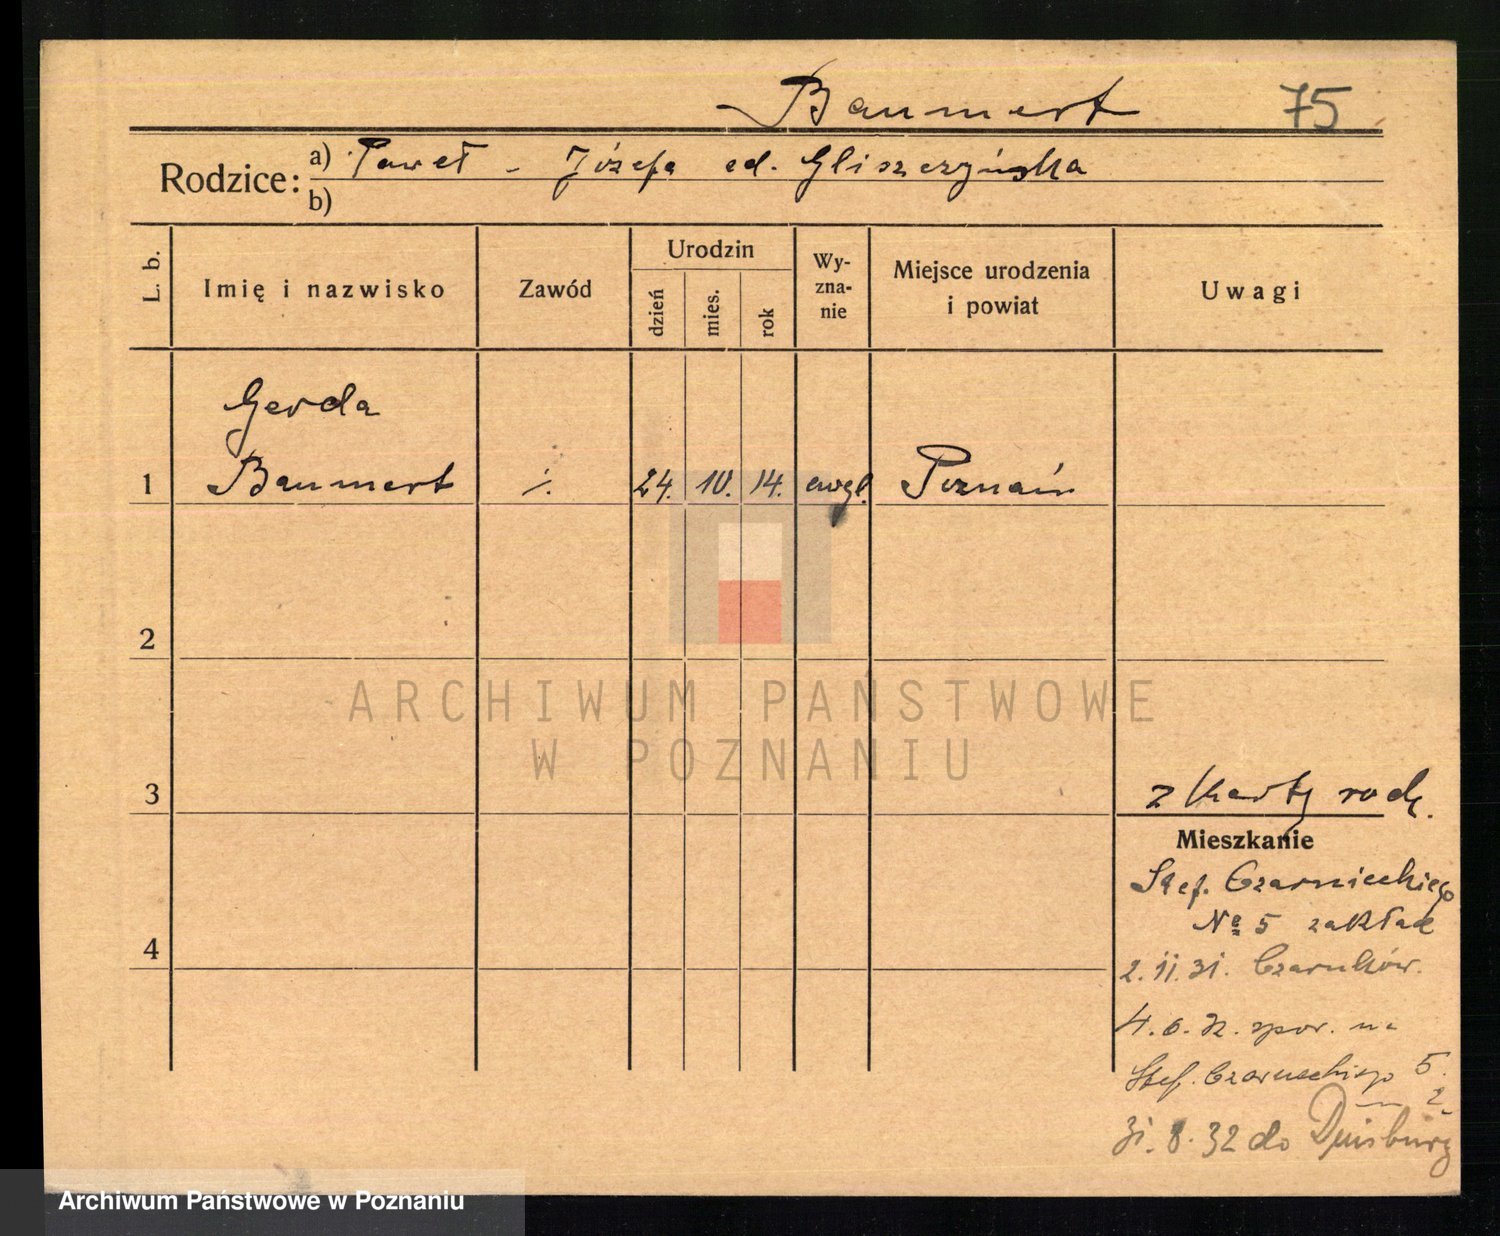 Baumert 75
Rodzice: a) Paweł - Józefa ed. Gliszczyńska
b)
L. b. Imię i nazwisko Zawód Urodzin dzień mies. rok Wy-zna-nie Miejsce urodzenia i powiat Uwagi
Gerda
1 Baumert ·/. 24. 10. 14. ewgl. Poznań
2
ARCHIWUM PAŃSTWOWE
W POZNANIU
3 z karty rodz.
Mieszkanie
Stef. Czarnieckiego
№ 5 zakład
4 2.11.31. Czarnków.
4.6.32. na
Stef. Czarnieckiego 5.
2
31.8.32 do Duisburg
Archiwum Państwowe w Poznaniu